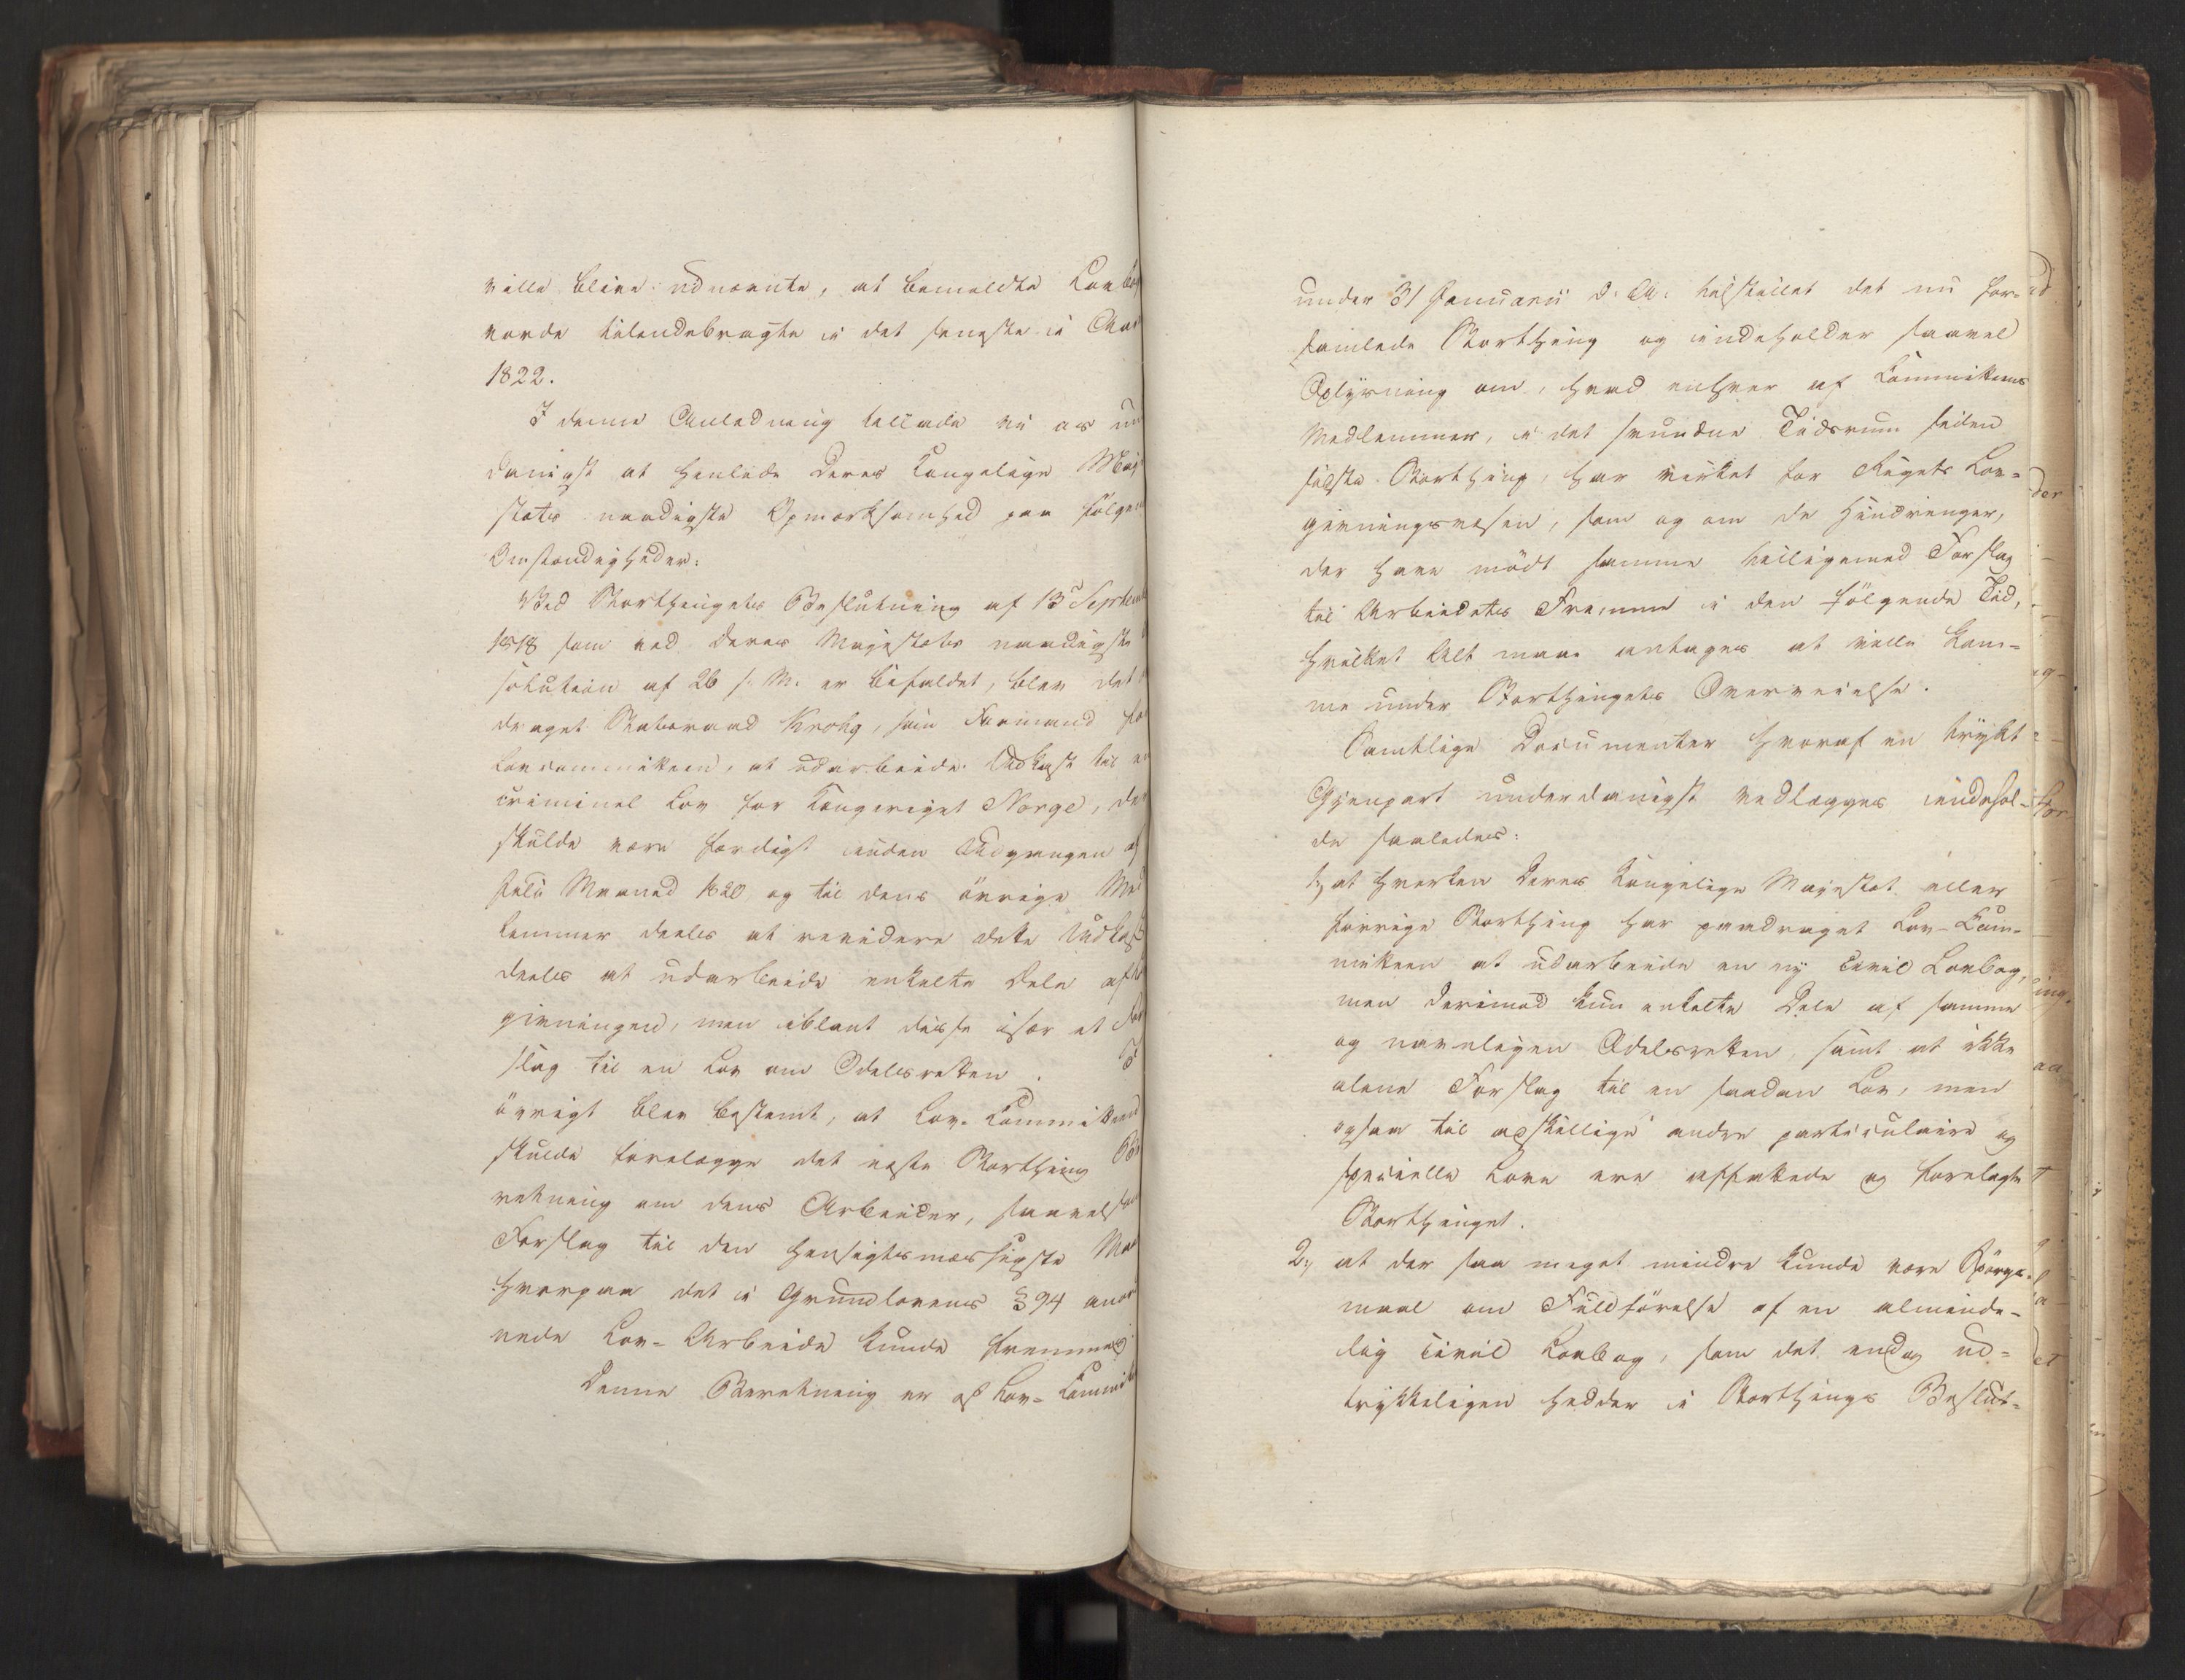 ville blive udnævnte, at bemeldte Lovbog
vorde tilendebragte i det seneste i Aar
1822.
I denne Anledning tillade vi os un
danigst at henlede Deres Kongelige Maj
stæts naadigste Opmærksomhed paa følgen
Omstændigheder:
Ved Storthingets Beslutning af 13 Septemb
1818 som ved Deres Majestæts naadigste
solution af 26 s. M. er bifaldet, blev det
draget Statsraad Krohg, som Formand for
Lovcommitteen, at udarbeide Udkast til en
criminel Lov for Kongeriget Norge, der
skulde være færdigt inden Udgangen af
Juli Maaned 1820 og til dens øvrige Med
lemmer deels at revidere dette Udkast
deels at udarbeide enkelte Dele af
givningen, men iblant disse især et For
slag til en Lov om Odelsretten. I
øvrigt blev bestemt, at Lov-Committeen
skulde forelægge det næste Storthing Be
retning om dens Arbeider, saavelsom
Forslag til den hensigtsmæssigste Maade
hvorpaa det i Grundlovens § 94 anord
nede Lov-Arbeide kunde fremmes.
Denne Beretning er af Lov-Committ
under 31 Januarii d. A. tilstillet det nu for-
samlede Storthing og indeholder saavel
Oplysning om, hvad enhver af Committeens
Medlemmer, i det svundne Tidsrum siden
sidste Storthing, har virket for Rigets Lov-
givningsvæsen, som og om de Hindringer,
der have mødt samme tilligemed Forslag
til Arbeidets Fremme i den følgende Tid,
hvilket Alt maae antages at ville kom-
me under Storthingets Overveielse.
Samtlige Documenter hvoraf en trykt
Gjenpart underdanigst vedlægges indehol-
de saaledes:
1, at hverken Deres Kongelige Majestæt eller
forrige Storthing har paadraget Lov-Com-
mitteen at udarbeide en ny Civil Lovbog,
men derimod kun enkelte Dele af samme
og navnligen Odelsretten, samt at ikke
alene Forslag til en saadan Lov, men
ogsaa til adskillige andre particulaire og
specielle Love ere affattede og forelagte
Storthinget.
2, at der saa meget mindre kunde være Spørgs-
maal om Fuldførelse af en alminde-
lig Civil Lovbog, som det endog ud-
trykkeligen hedder i Storthings Beslut-